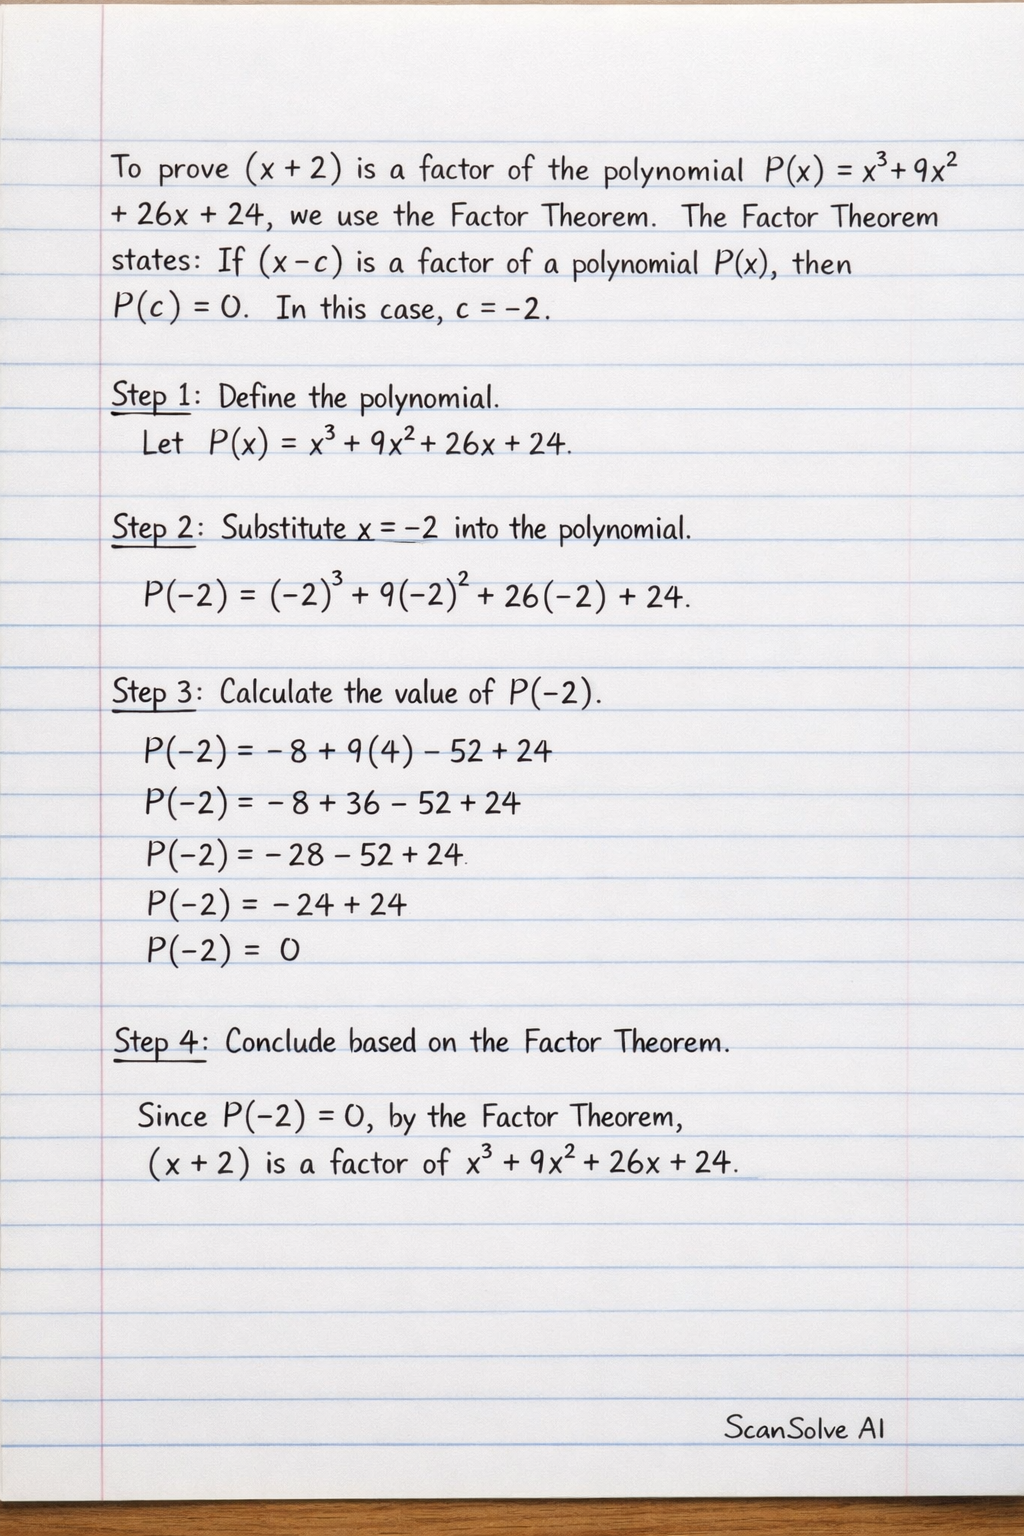 To prove (x + 2) is a factor of the polynomial P(x) = x³ + 9x²
+ 26x + 24, we use the Factor Theorem. The Factor Theorem
states: If (x - c) is a factor of a polynomial P(x), then
P(c) = 0. In this case, c = -2.
Step 1: Define the polynomial.
Let P(x) = x³ + 9x² + 26x + 24.
Step 2: Substitute x = -2 into the polynomial.
P(-2) = (-2)³ + 9(-2)² + 26(-2) + 24.
Step 3: Calculate the value of P(-2).
P(-2) = -8 + 9(4) - 52 + 24
P(-2) = -8 + 36 - 52 + 24
P(-2) = -28 - 52 + 24.
P(-2) = -24 + 24
P(-2) = 0
Step 4: Conclude based on the Factor Theorem.
Since P(-2) = 0, by the Factor Theorem,
(x + 2) is a factor of x³ + 9x² + 26x + 24.
ScanSolve AI